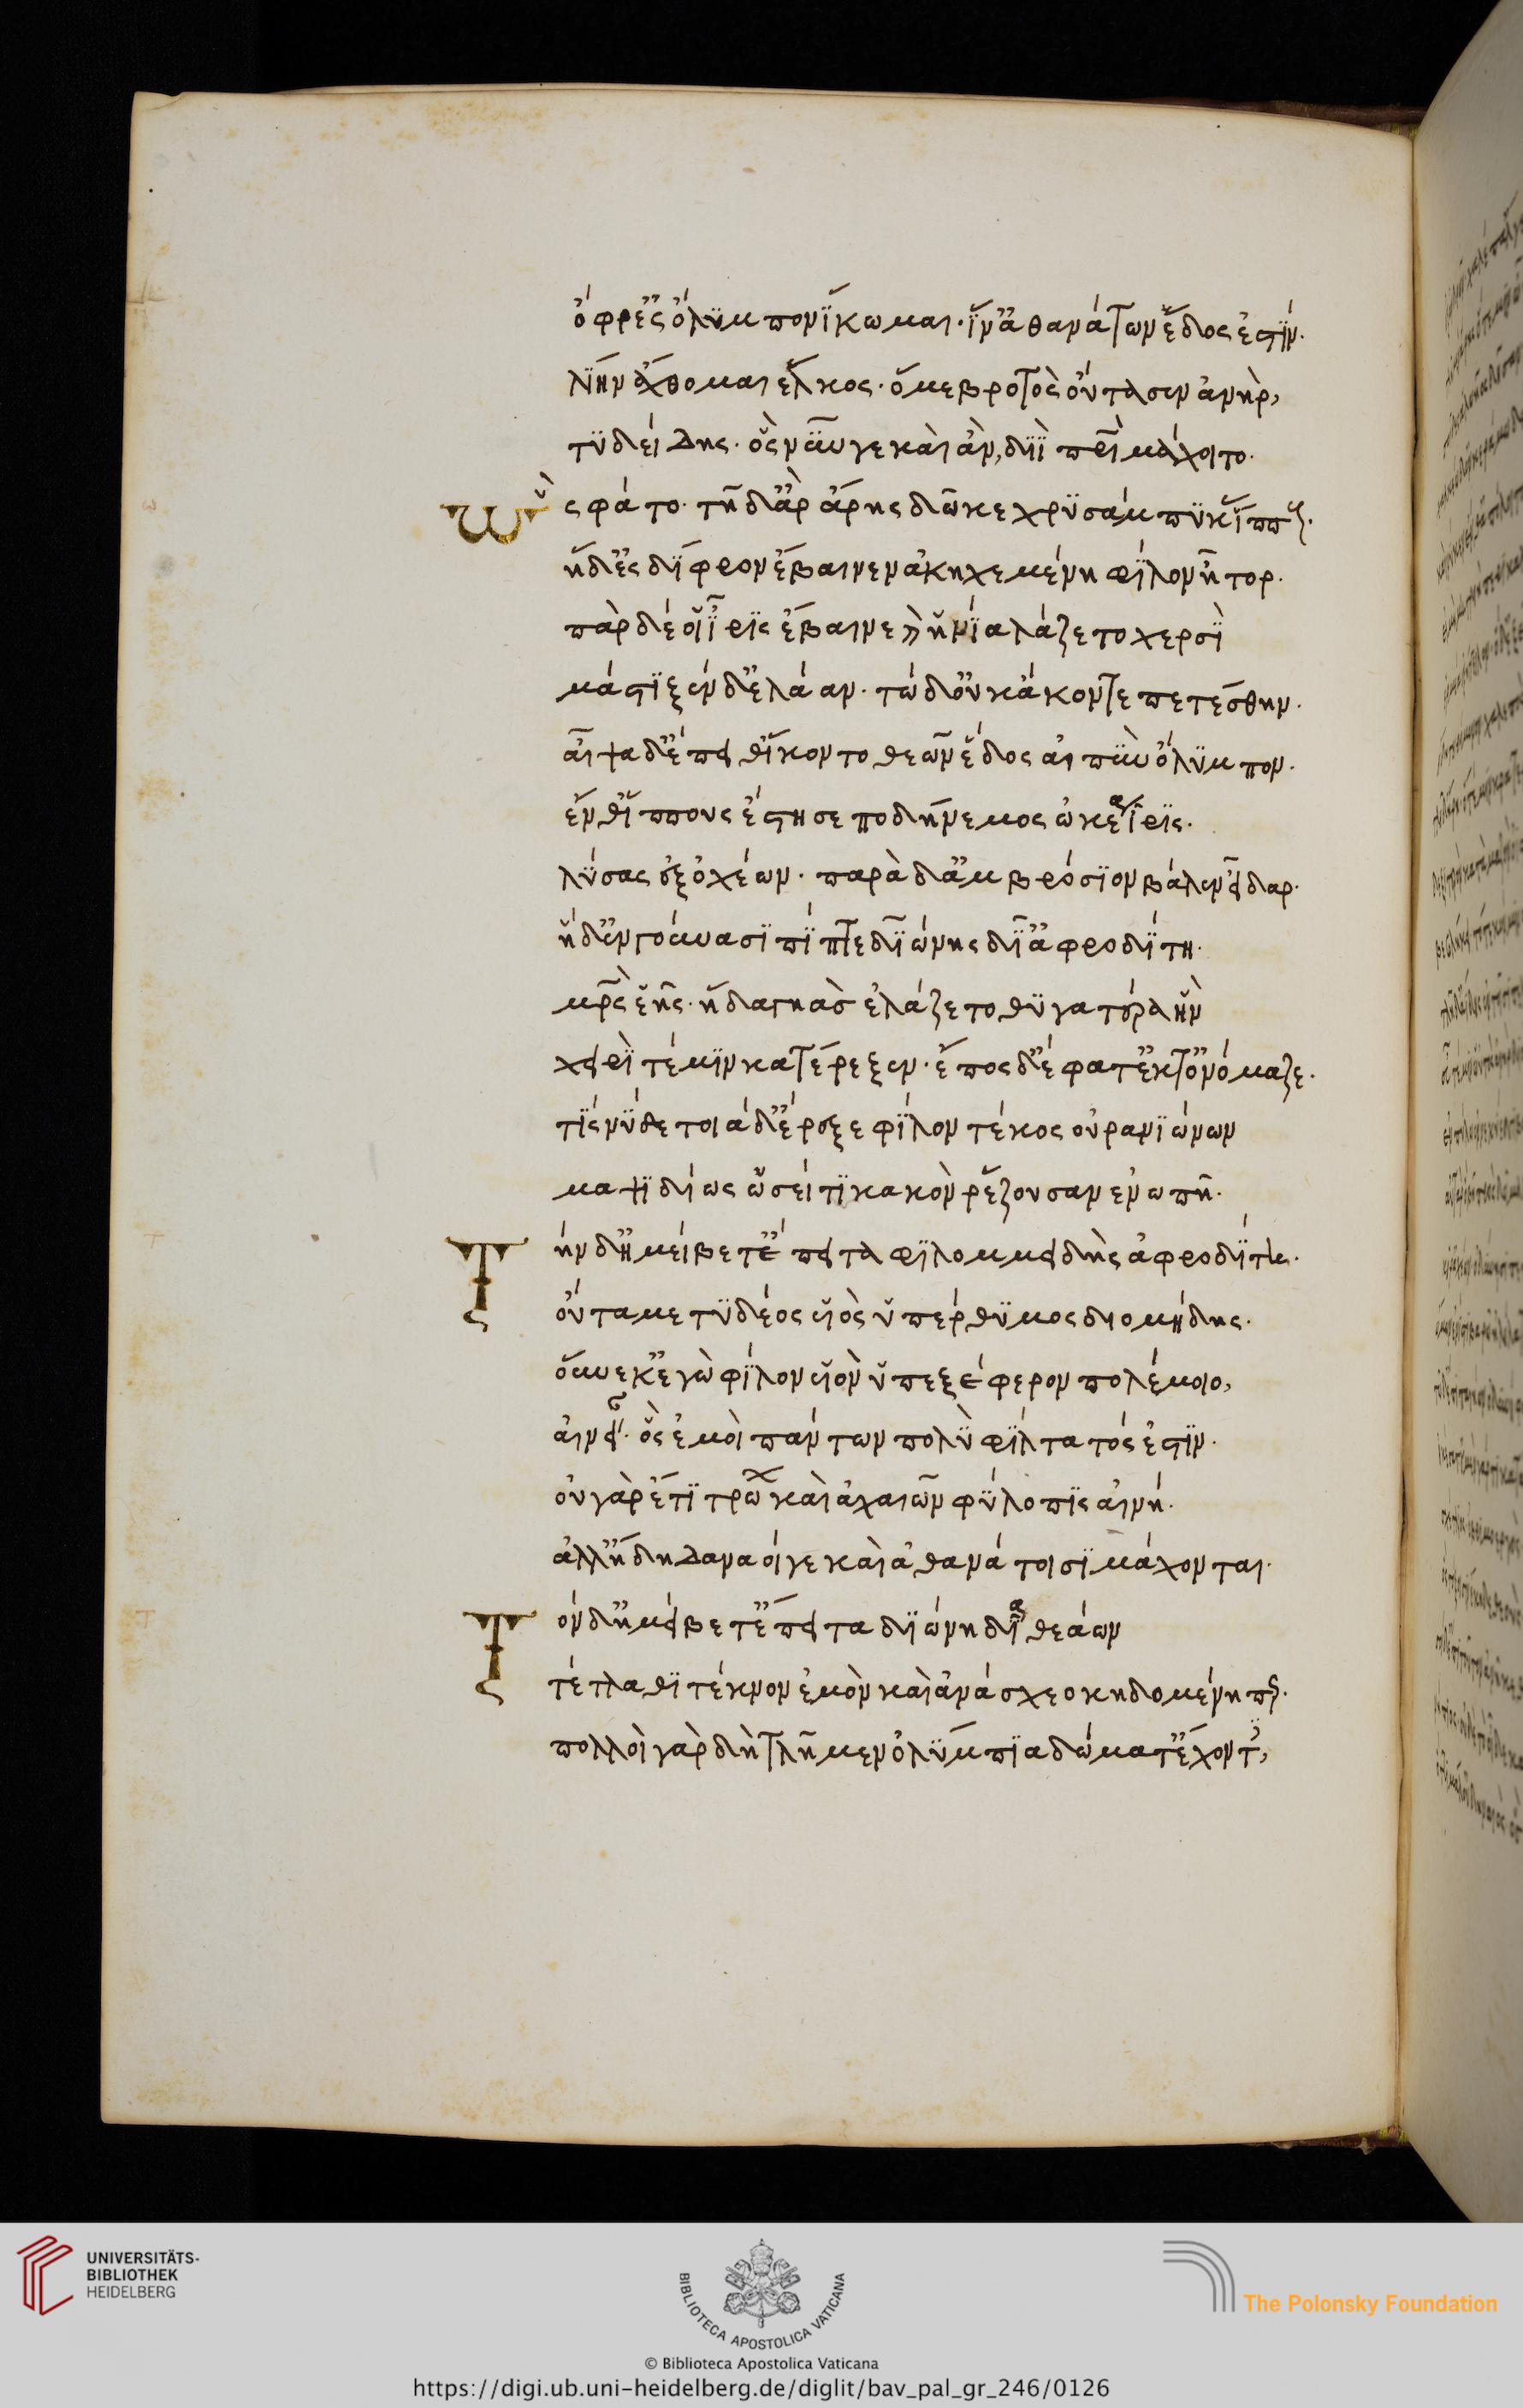 ὄφρ' ἐς ὄλϋμπον ἵκωμαι· ἵν' ἀθανάτων ἕδος ἐστίν·
λίην ἄχθομαι ἕλκος· ὅ με βροτὸς οὔτασεν ἀνὴρ,
τϋδείδης· ὃς νῦν γε καὶ ἂν, διῒ πρὶ μάχοιτο·
Ὣς φάτο· τῇ δ' ἄρ ἄρης δῶκε χρϋσάμπϋκ ἵππους·
ἡ δ' ἐς δίφρον ἔβαινεν ἀκηχεμένη φίλον ἦτορ·
πὰρ δέ οἱ ἶρϊς ἔβαινε καὶ ἡνία λάζετο χερσὶ
μάστϊξεν δ' ἐλάαν· τὼ δ' οὐκ ἄκοντε πετέσθην·
αἶψα δ' ἔπειθ' ἵκοντο θεῶν ἕδος αἰπὺν ὄλϋμπον·
ἔνθ' ἵππους ἔστησε ποδήνεμος ὠκέα ἶρϊς·
λύσας ἐξ ὀχέων· παρὰ δ' ἀμβρόσϊον βάλεν εἶδαρ·
ἡ δ' ἐν γούνασϊ πίπτε διώνης δῖ' ἀφροδίτη·
μρὸς ἑῆς· ἡ δ' ἀγκὰσ ἐλάζετο θϋγατέρα ἣν
χειρί τέ μϊν κατέρεξεν· ἔπος δ' ἔφατ' ἔκ τ' ὀνόμαζε·
τίς νύ σε τοιάδ' ἔρεξε φίλον τέκος οὐρανϊώνων
μαψϊδίως ὡσεί τϊ κακὸν ῥέζουσαν ἐνωπῇ·
Τὴν δ' ἠμείβετ' ἔπειτα φϊλομμειδὴς ἀφροδίτη·
οὖτα με τϋδέος υἱὸς ὑπέρθϋμος διομήδης·
οὕνεκ' ἐγὼ φίλον υἱὸν ὑπεξέφερον πολέμοιο,
αἰνείαν· ὃς ἐμοὶ πάντων πολὺ φίλτατός ἐστϊν·
οὐ γὰρ ἔτϊ τρώων καὶ ἀχαιῶν φύλοπϊς αἰνή·
ἀλλ' ἤδη δαναοίγε καὶ ἀθανάτοισϊ μάχονται·
Τὸν δ' ἠμείβετ' ἔπειτα διώνη δῖα θεάων
τέτλαθϊ τέκνον ἐμὸν καὶ ἀνάσχεο κηδομένη περ·
πολλοὶ γὰρ δὴ τλῆμεν ὀλύμπϊα δώματ' ἔχοντ',
UNIVERSITÄTS-
BIBLIOTHEK
HEIDELBERG
BIBLIOTECA APOSTOLICA VATICANA
The Polonsky Foundation
© Biblioteca Apostolica Vaticana
https://digi.ub.uni-heidelberg.de/diglit/bav_pal_gr_246/0126